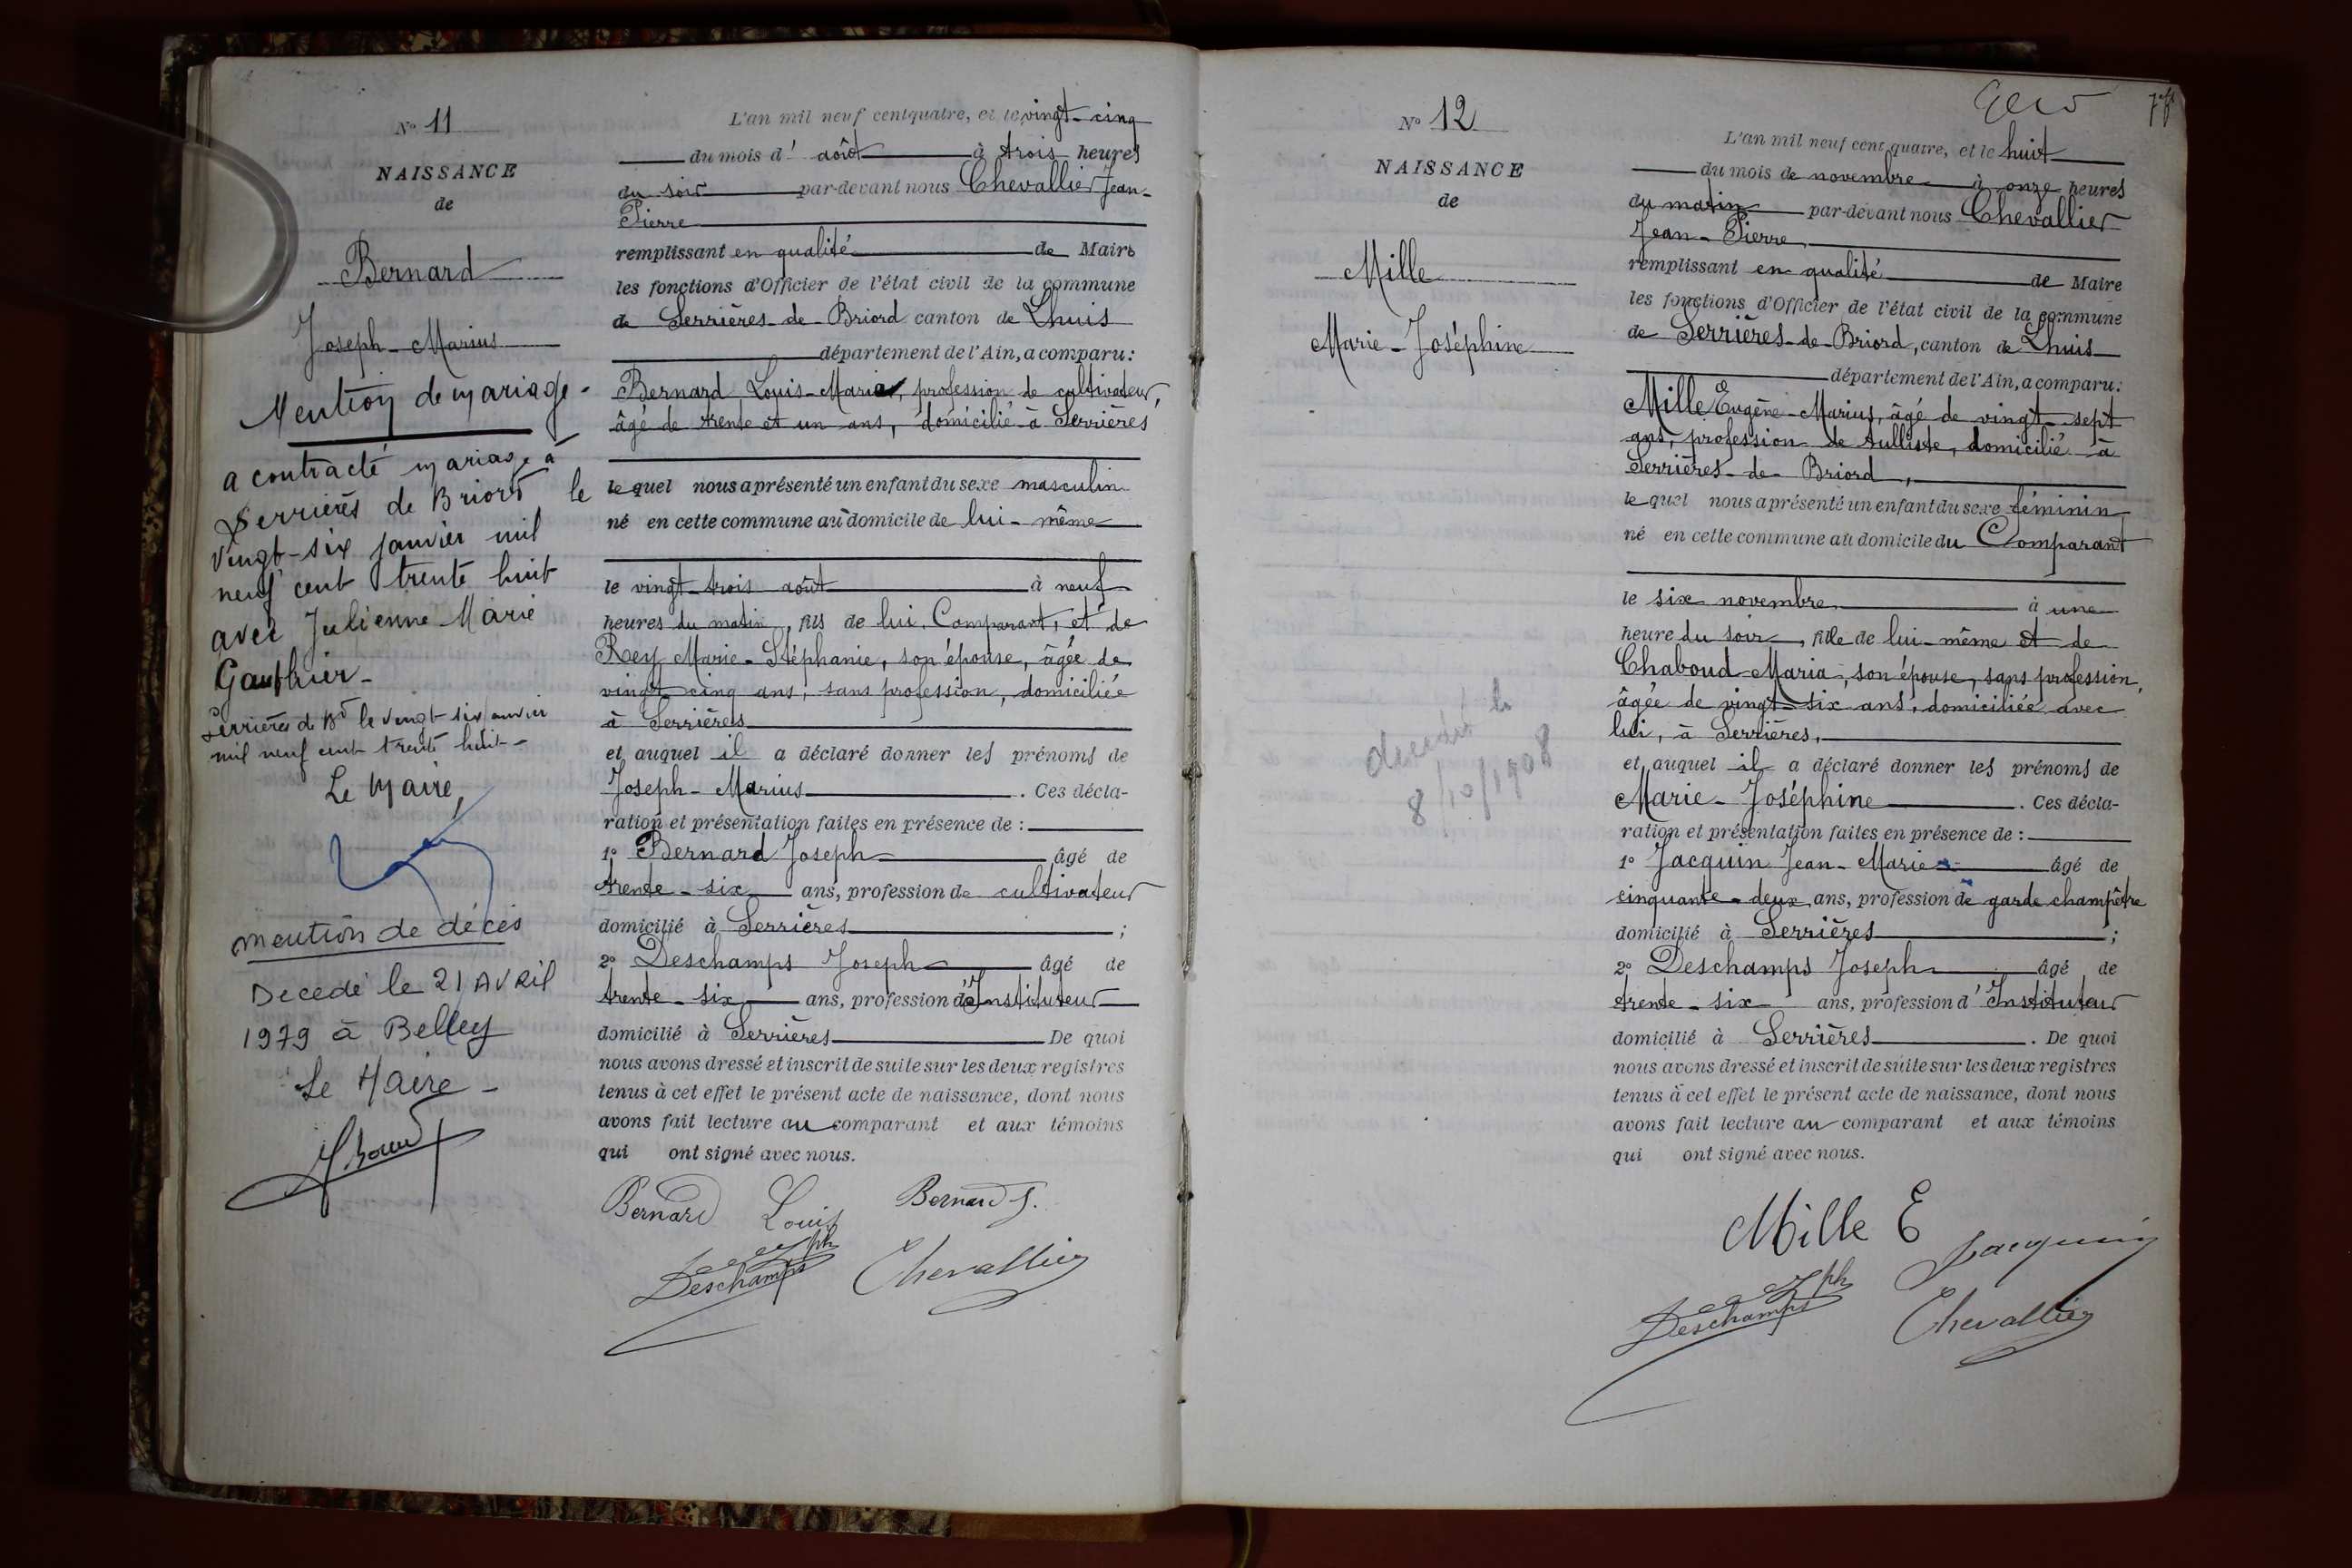 N° 11
NAISSANCE
de
Bernard
Joseph-Marius
Mention de mariage-
a contracté mariage à
Serrières de Briord le
vingt-six janvier mil
neuf cent trente huit
avec Julienne Marie
Gauthier-
Serrières de Bd le vingt six janvier
mil neuf cent trente huit-
Le Maire,
mention de décès
Decedé le 21 AVRIL
1979 à Belley
Le Maire-
L'an mil neuf cent quatre, et le vingt-cinq
du mois d' août à trois heures
du soir par-devant nous Chevallier Jean-
Pierre
remplissant en qualité de Maire
les fonctions d'Officier de l'état civil de la commune
de Serrières-de-Briord canton de Lhuis
département de l'Ain, a comparu:
Bernard Louis-Marie, profession de cultivateur,
âgé de trente et un ans, domicilié à Serrières
lequel nous a présenté un enfant du sexe masculin
né en cette commune au domicile de lui-même
le vingt-trois août à neuf
heures du matin, fils de lui, Comparant, et de
Rey Marie-Stéphanie, son épouse, âgée de
vingt-cinq ans, sans profession, domiciliée
à Serrières
et auquel il a déclaré donner les prénoms de
Joseph-Marius. Ces décla-
ration et présentation faites en présence de :
1° Bernard Joseph âgé de
trente-six ans, profession de cultivateur
domicilié à Serrières ;
2° Deschamps Joseph âgé de
trente-six ans, profession d'Instituteur
domicilié à Serrières De quoi
nous avons dressé et inscrit de suite sur les deux registres
tenus à cet effet le présent acte de naissance, dont nous
avons fait lecture au comparant et aux témoins
qui ont signé avec nous.
Bernard Louis Bernard J.
Deschamps Jph Chevallier
7
N° 12
NAISSANCE
de
Mille
Marie-Joséphine
décédée le
8/10/1908
L'an mil neuf cent quatre, et le huit
du mois de novembre à onze heures
du matin par-devant nous Chevallier
Jean-Pierre,
remplissant en qualité de Maire
les fonctions d'Officier de l'état civil de la commune
de Serrières-de-Briord, canton de Lhuis
département de l'Ain, a comparu:
Mille Eugène-Marius, âgé de vingt-sept
ans, profession de tulliste, domicilié à
Serrières-de-Briord,
lequel nous a présenté un enfant du sexe féminin
né en cette commune au domicile du Comparant
le six novembre à une
heure du soir, fille de lui-même et de
Chaboud Maria, son épouse, sans profession,
âgée de vingt-six ans, domiciliée avec
lui, à Serrières,
et auquel il a déclaré donner les prénoms de
Marie-Joséphine. Ces décla-
ration et présentation faites en présence de :
1° Jacquin Jean-Marie âgé de
cinquante-deux ans, profession de garde champêtre
domicilié à Serrières ;
2° Deschamps Joseph âgé de
trente-six ans, profession d'Instituteur
domicilié à Serrières. De quoi
nous avons dressé et inscrit de suite sur les deux registres
tenus à cet effet le présent acte de naissance, dont nous
avons fait lecture au comparant et aux témoins
qui ont signé avec nous.
Mille E Jacquin
Deschamps Jph Chevallier